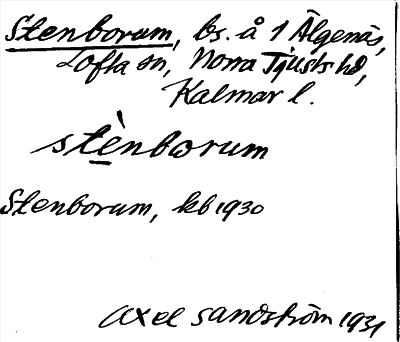 Stenborum, bs. å 1 Älgenäs,
Lofta sn, Norra Tjusts hd,
Kalmar l.
stènborum
Stenborum, kb 1930
Axel Sandström 1931